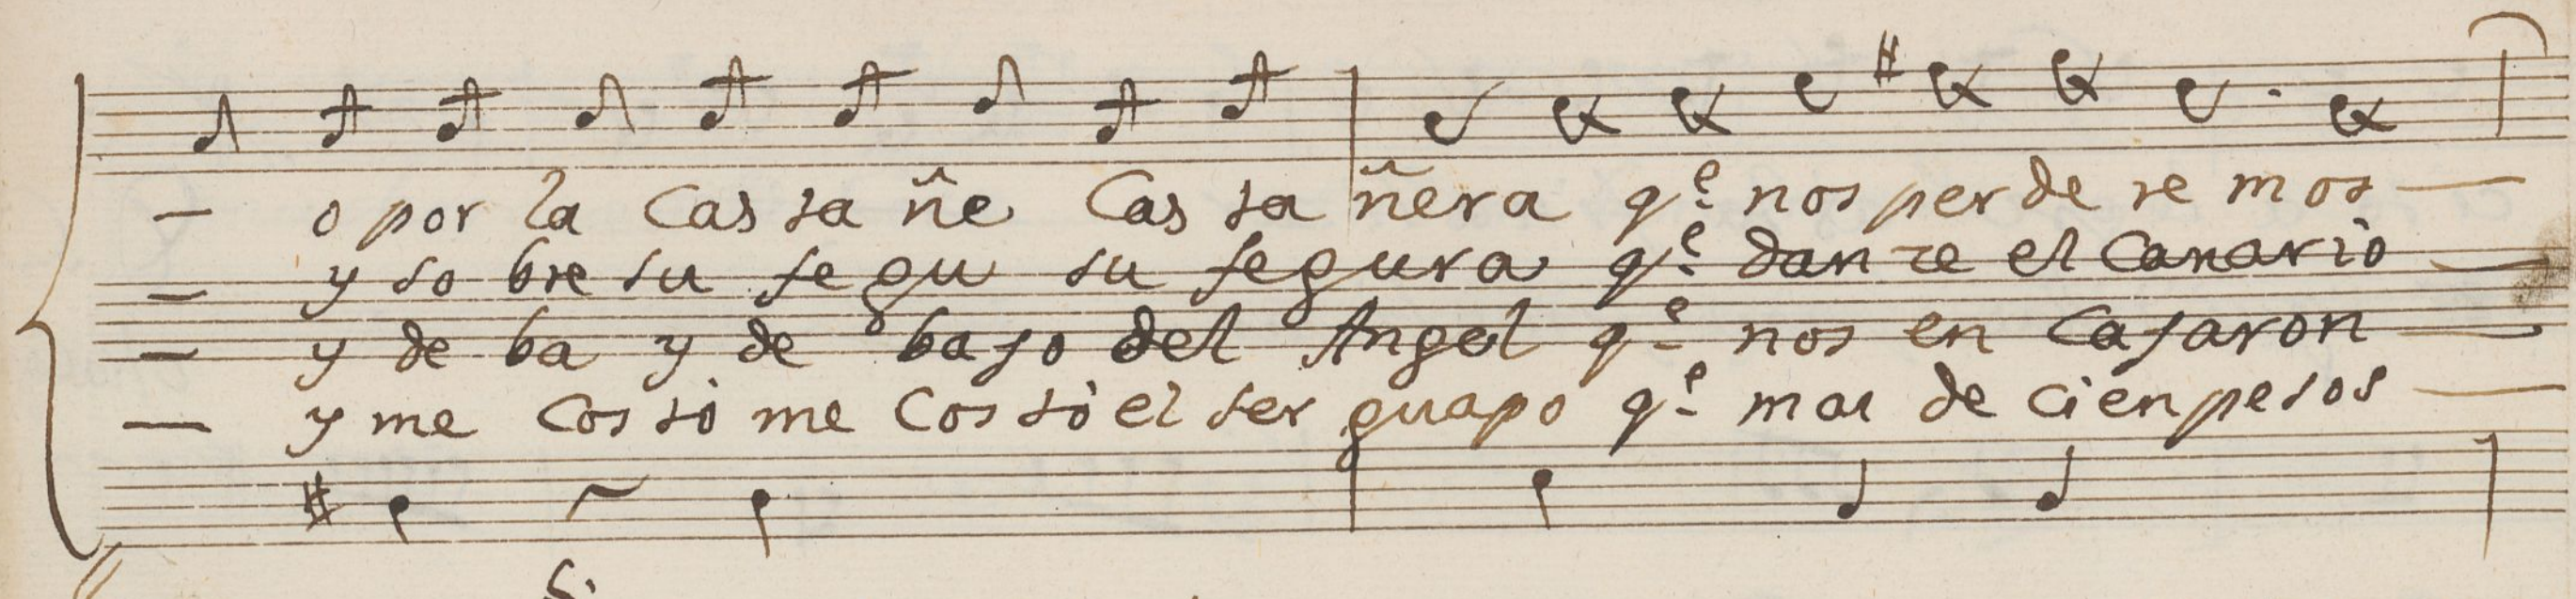 — o por la Cas ta ñe Cas ta ñera q.e nos per de re mos —
— y so bre su se gu su segura q.e dan ze el Canario —
— y de ba y de baxo del Angel q.e nos en Casaron —
— y me Cos tò me Cos tò el ser guapo q.e mas de cien pesos —